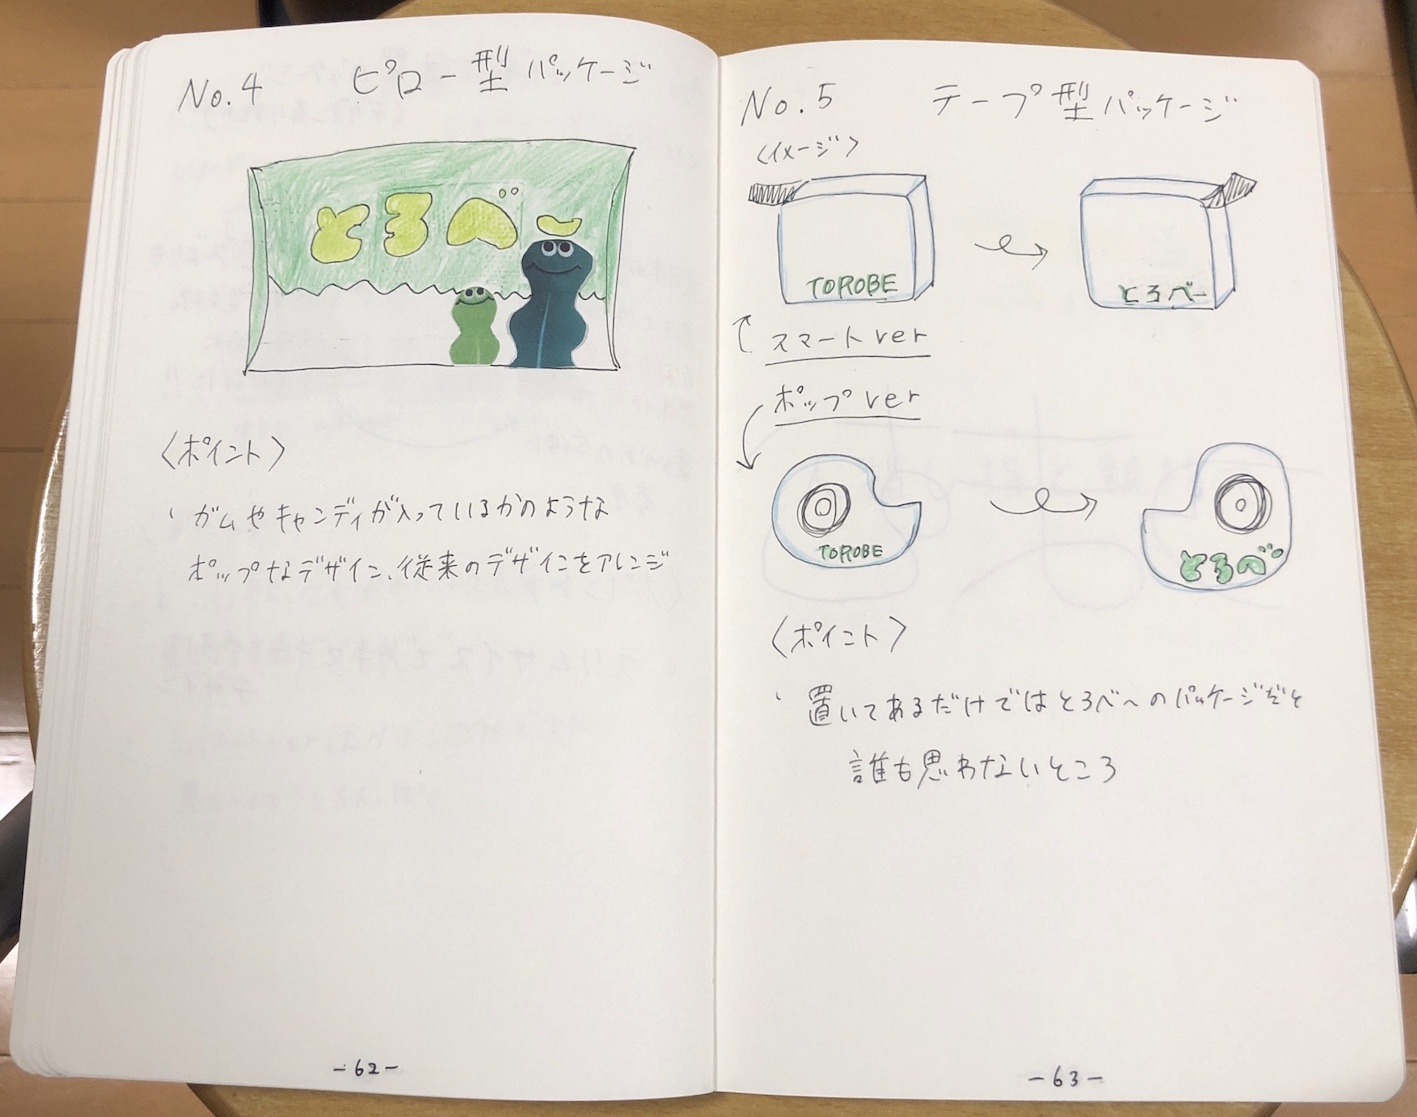 No.4 ピロー型パッケージ
とろべー
〈ポイント〉
・ガムやキャンディが入っているかのような
ポップなデザイン、従来のデザインをアレンジ
-62-
No.5 テープ型パッケージ
〈イメージ〉
TOROBE
とろべー
スマートver
ポップver
TOROBE
とろべー
〈ポイント〉
・置いてあるだけではとろべーのパッケージだと
誰も思わないところ
-63-